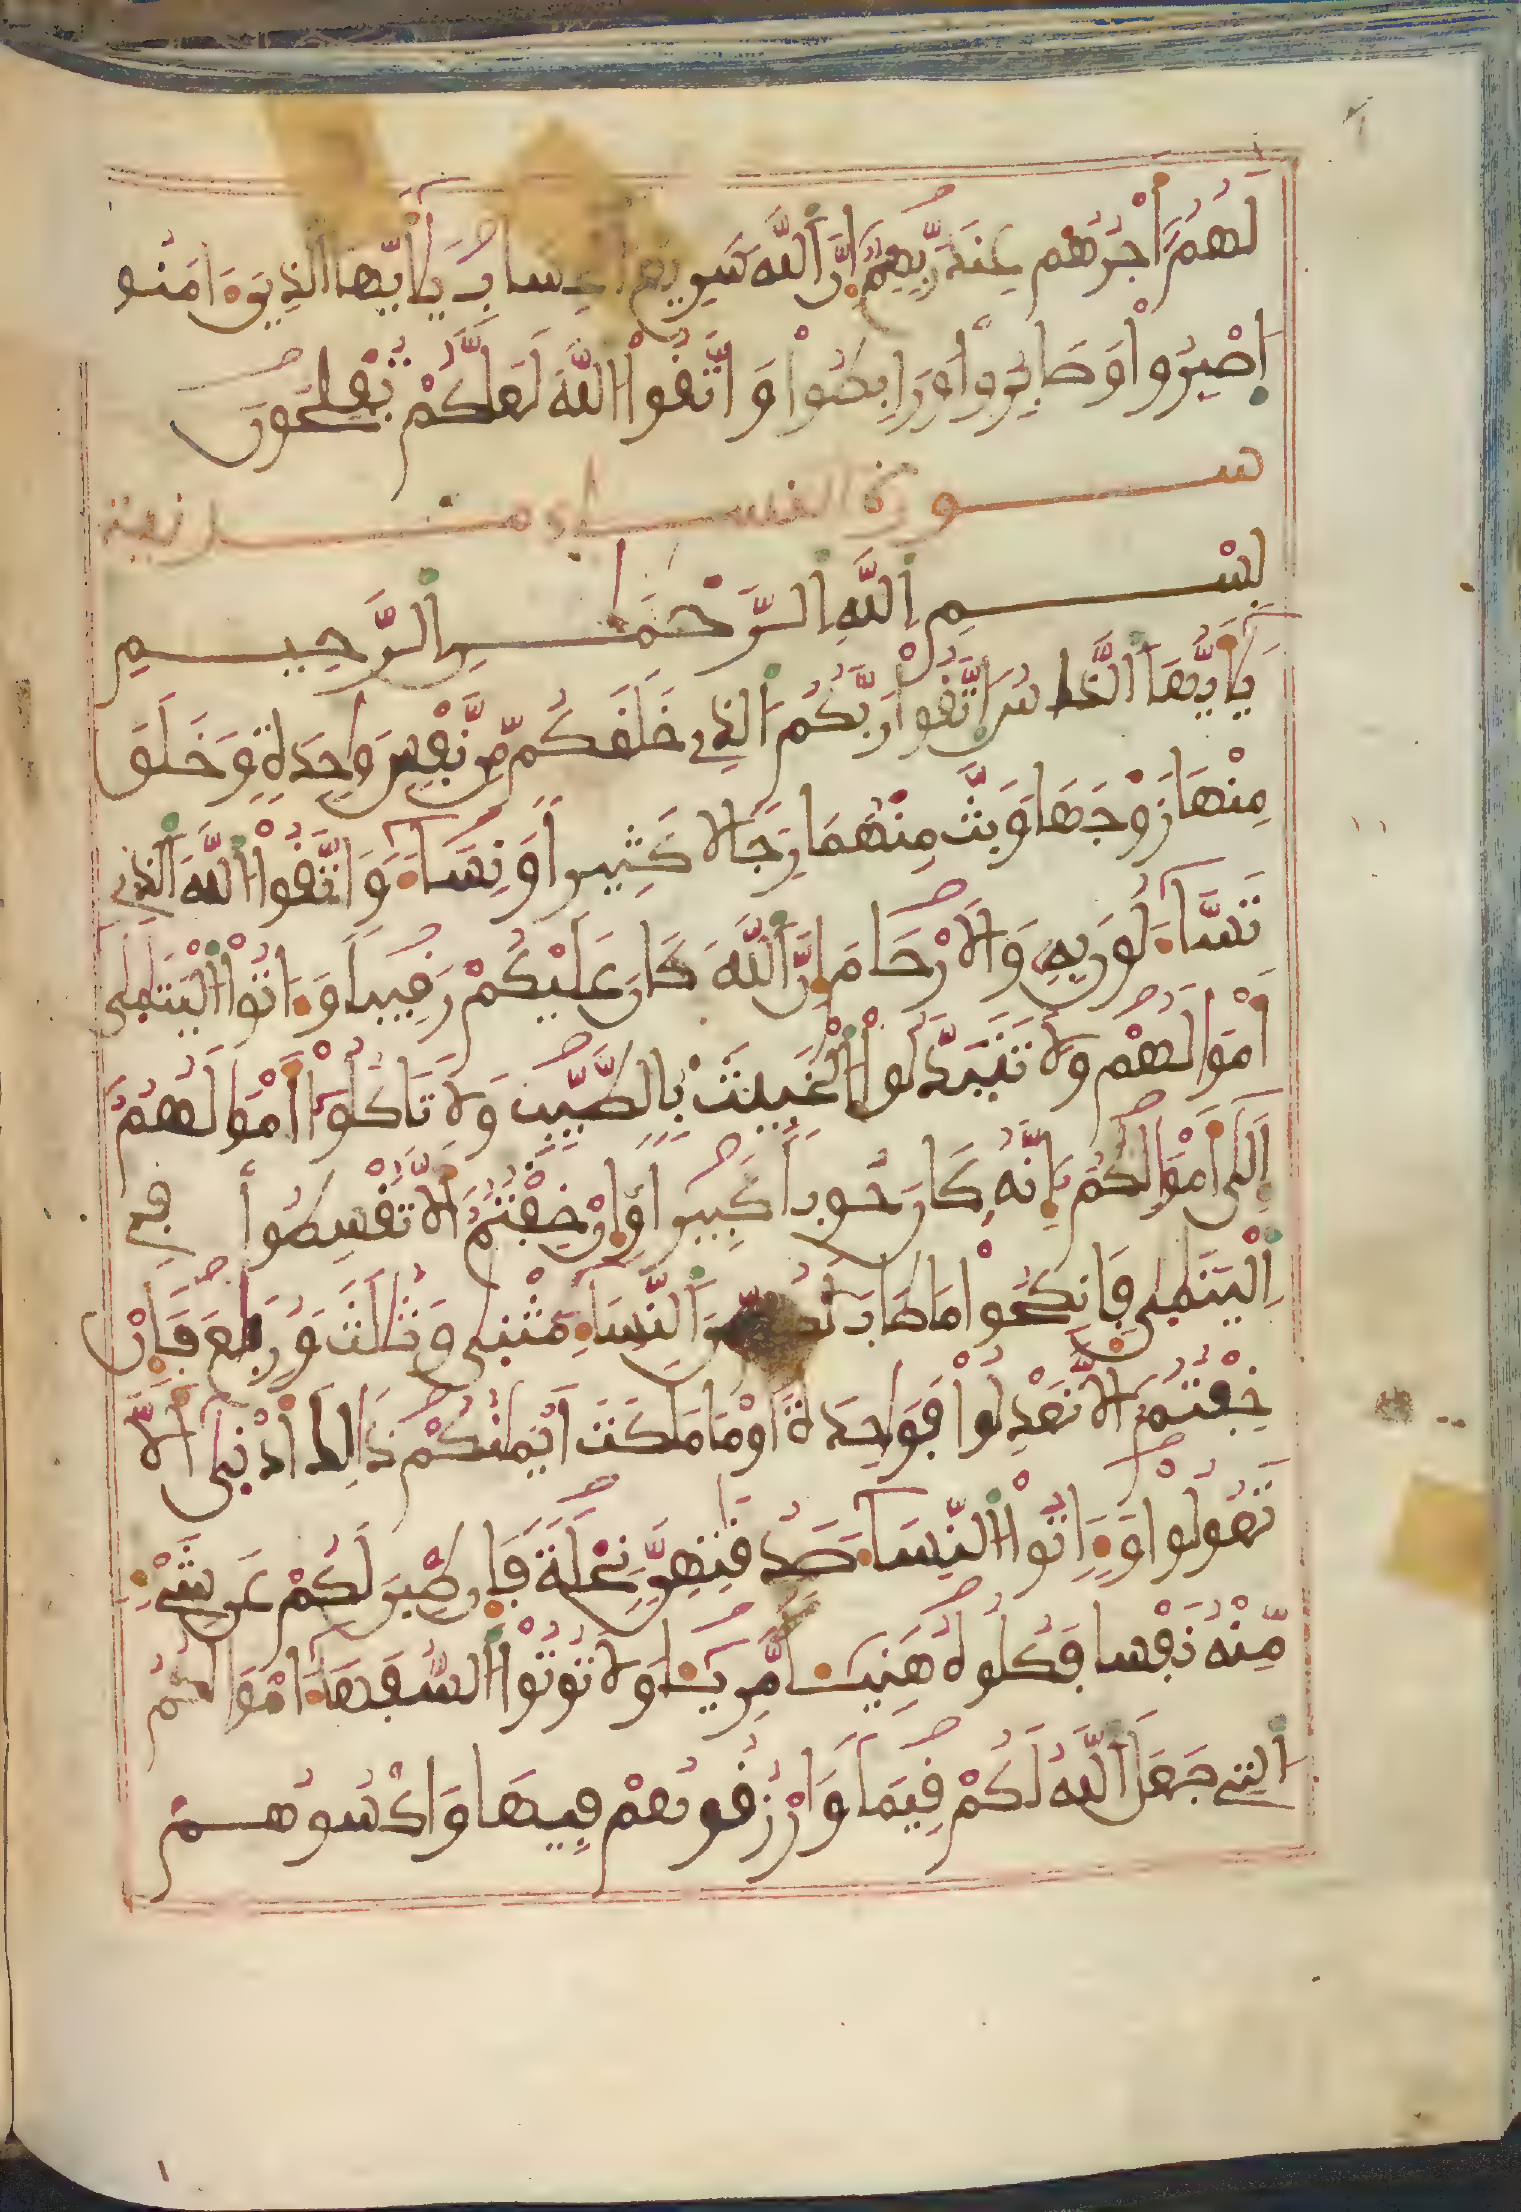 لَهُمُۥٓ أَجْرُهُمْ عِندَ رَبِّهِمُۥٓ إِنَّ ٱللَّهَ سَرِيعُ ٱلْحِسَابِ يَٰٓأَيُّهَا ٱلذِينَ ءَامَنُوا
ٱصْبِرُوا۟ وَصَابِرُوا۟ وَرَابِطُوا۟ وَٱتَّقُوا۟ ٱللَّهَ لَعَلَّكُمْ تُفْلِحُونَ
سورة النساء مدنية
بِسْمِ ٱللَّهِ ٱلرَّحْمَٰنِ ٱلرَّحِيمِ
يَٰٓأَيُّهَا ٱلنَّاسُ ٱتَّقُوا۟ رَبَّكُمُ ٱلذِے خَلَقَكُم مِّن نَّفْسٍ وَٰحِدَةٍ وَخَلَقَ
مِنْهَا زَوْجَهَا وَبَثَّ مِنْهُمَا رِجَالًا كَثِيرًا وَنِسَآءً وَٱتَّقُوا۟ ٱللَّهَ ٱلذِے
تَسَّآءَلُونَ بِهِۦ وَٱلَارْحَامَ إِنَّ ٱللَّهَ كَانَ عَلَيْكُمْ رَقِيبًا وَءَاتُوا۟ ٱلْيَتَٰمَىٰٓ
أَمْوَٰلَهُمْ وَلَا تَتَبَدَّلُوا۟ ٱلْخَبِيثَ بِالطَّيِّبِ وَلَا تَاكُلُوٓا۟ أَمْوَٰلَهُمُۥٓ
إِلَىٰٓ أَمْوَٰلِكُمُۥٓ إِنَّهُۥ كَانَ حُوبًا كَبِيرًا وَإِنْ خِفْتُمُۥٓ أَلَّا تُقْسِطُوا۟ فِے
ٱلْيَتَٰمَىٰ فَانكِحُوا۟ مَا طَابَ لَكُم مِّنَ ٱلنِّسَآءِ مَثْنَىٰ وَثُلَٰثَ وَرُبَٰعَ فَإِنْ
خِفْتُمُۥٓ أَلَّا تَعْدِلُوا۟ فَوَٰحِدَةً اَوْ مَا مَلَكَتَ اَيْمَٰنُكُمْ ذَٰلِكَ أَدْنَىٰٓ أَلَّا
تَعُولُوا۟ وَءَاتُوا۟ ٱلنِّسَآءَ صَدُقَٰتِهِنَّ نِحْلَةً فَإِن طِبْنَ لَكُمْ عَن شَےْءٍ
مِّنْهُ نَفْسًا فَكُلُوهُ هَنِيٓـًٔا مَّرِيٓـًٔا وَلَا تُوتُوا۟ ٱلسُّفَهَآءَ امْوَٰلَكُمُ
ٱلتِے جَعَلَ ٱللَّهُ لَكُمْ قِيَمًا وَارْزُقُوهُمْ فِيهَا وَاكْسُوهُمْ